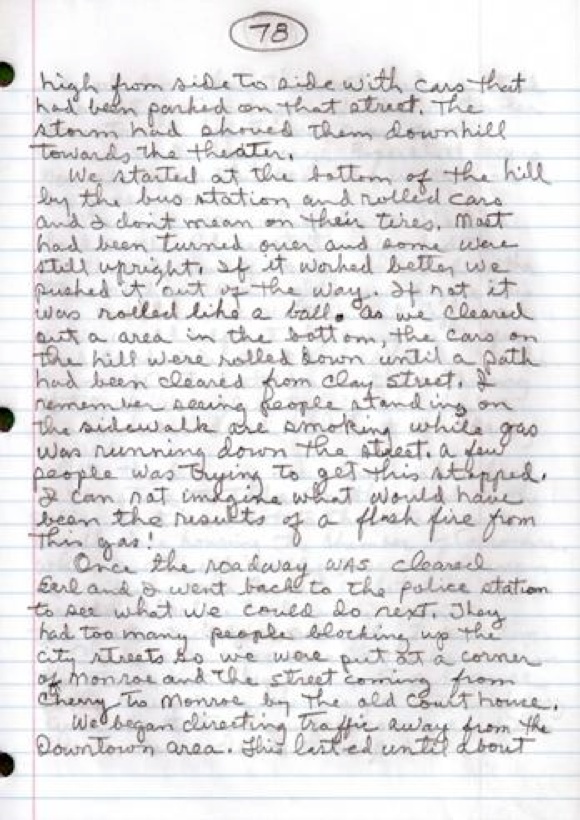 78
high from side to side with cars that
had been parked on that street. The
storm had shoved them downhill
towards the theater.
We started at the bottom of the hill
by the bus station and rolled cars
and I don't mean on their tires. Most
had been turned over and some were
still upright. If it worked better we
pushed it out of the way. If not it
was rolled like a ball. As we cleared
out a area in the bottom, the cars on
the hill were rolled down until a path
had been cleared from Clay Street. I
remember seeing people standing on
the sidewalk are smoking while gas
was running down the street. a few
people was trying to get this stopped.
I can not imagine what would have
been the results of a flash fire from
this gas!
Once the roadway was cleared
Earl and I went back to the police station
to see what we could do next. They
had too many people blocking up the
city streets so we were put at a corner
of Monroe and the street coming from
Cherry to Monroe by the old Court house.
We began directing traffic away from the
Downtown area. This lasted until about